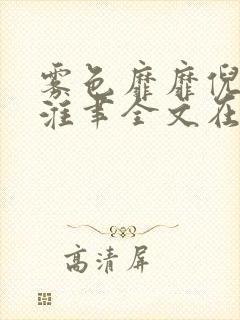 雾色靡靡倪
漄事全文在
高清屏